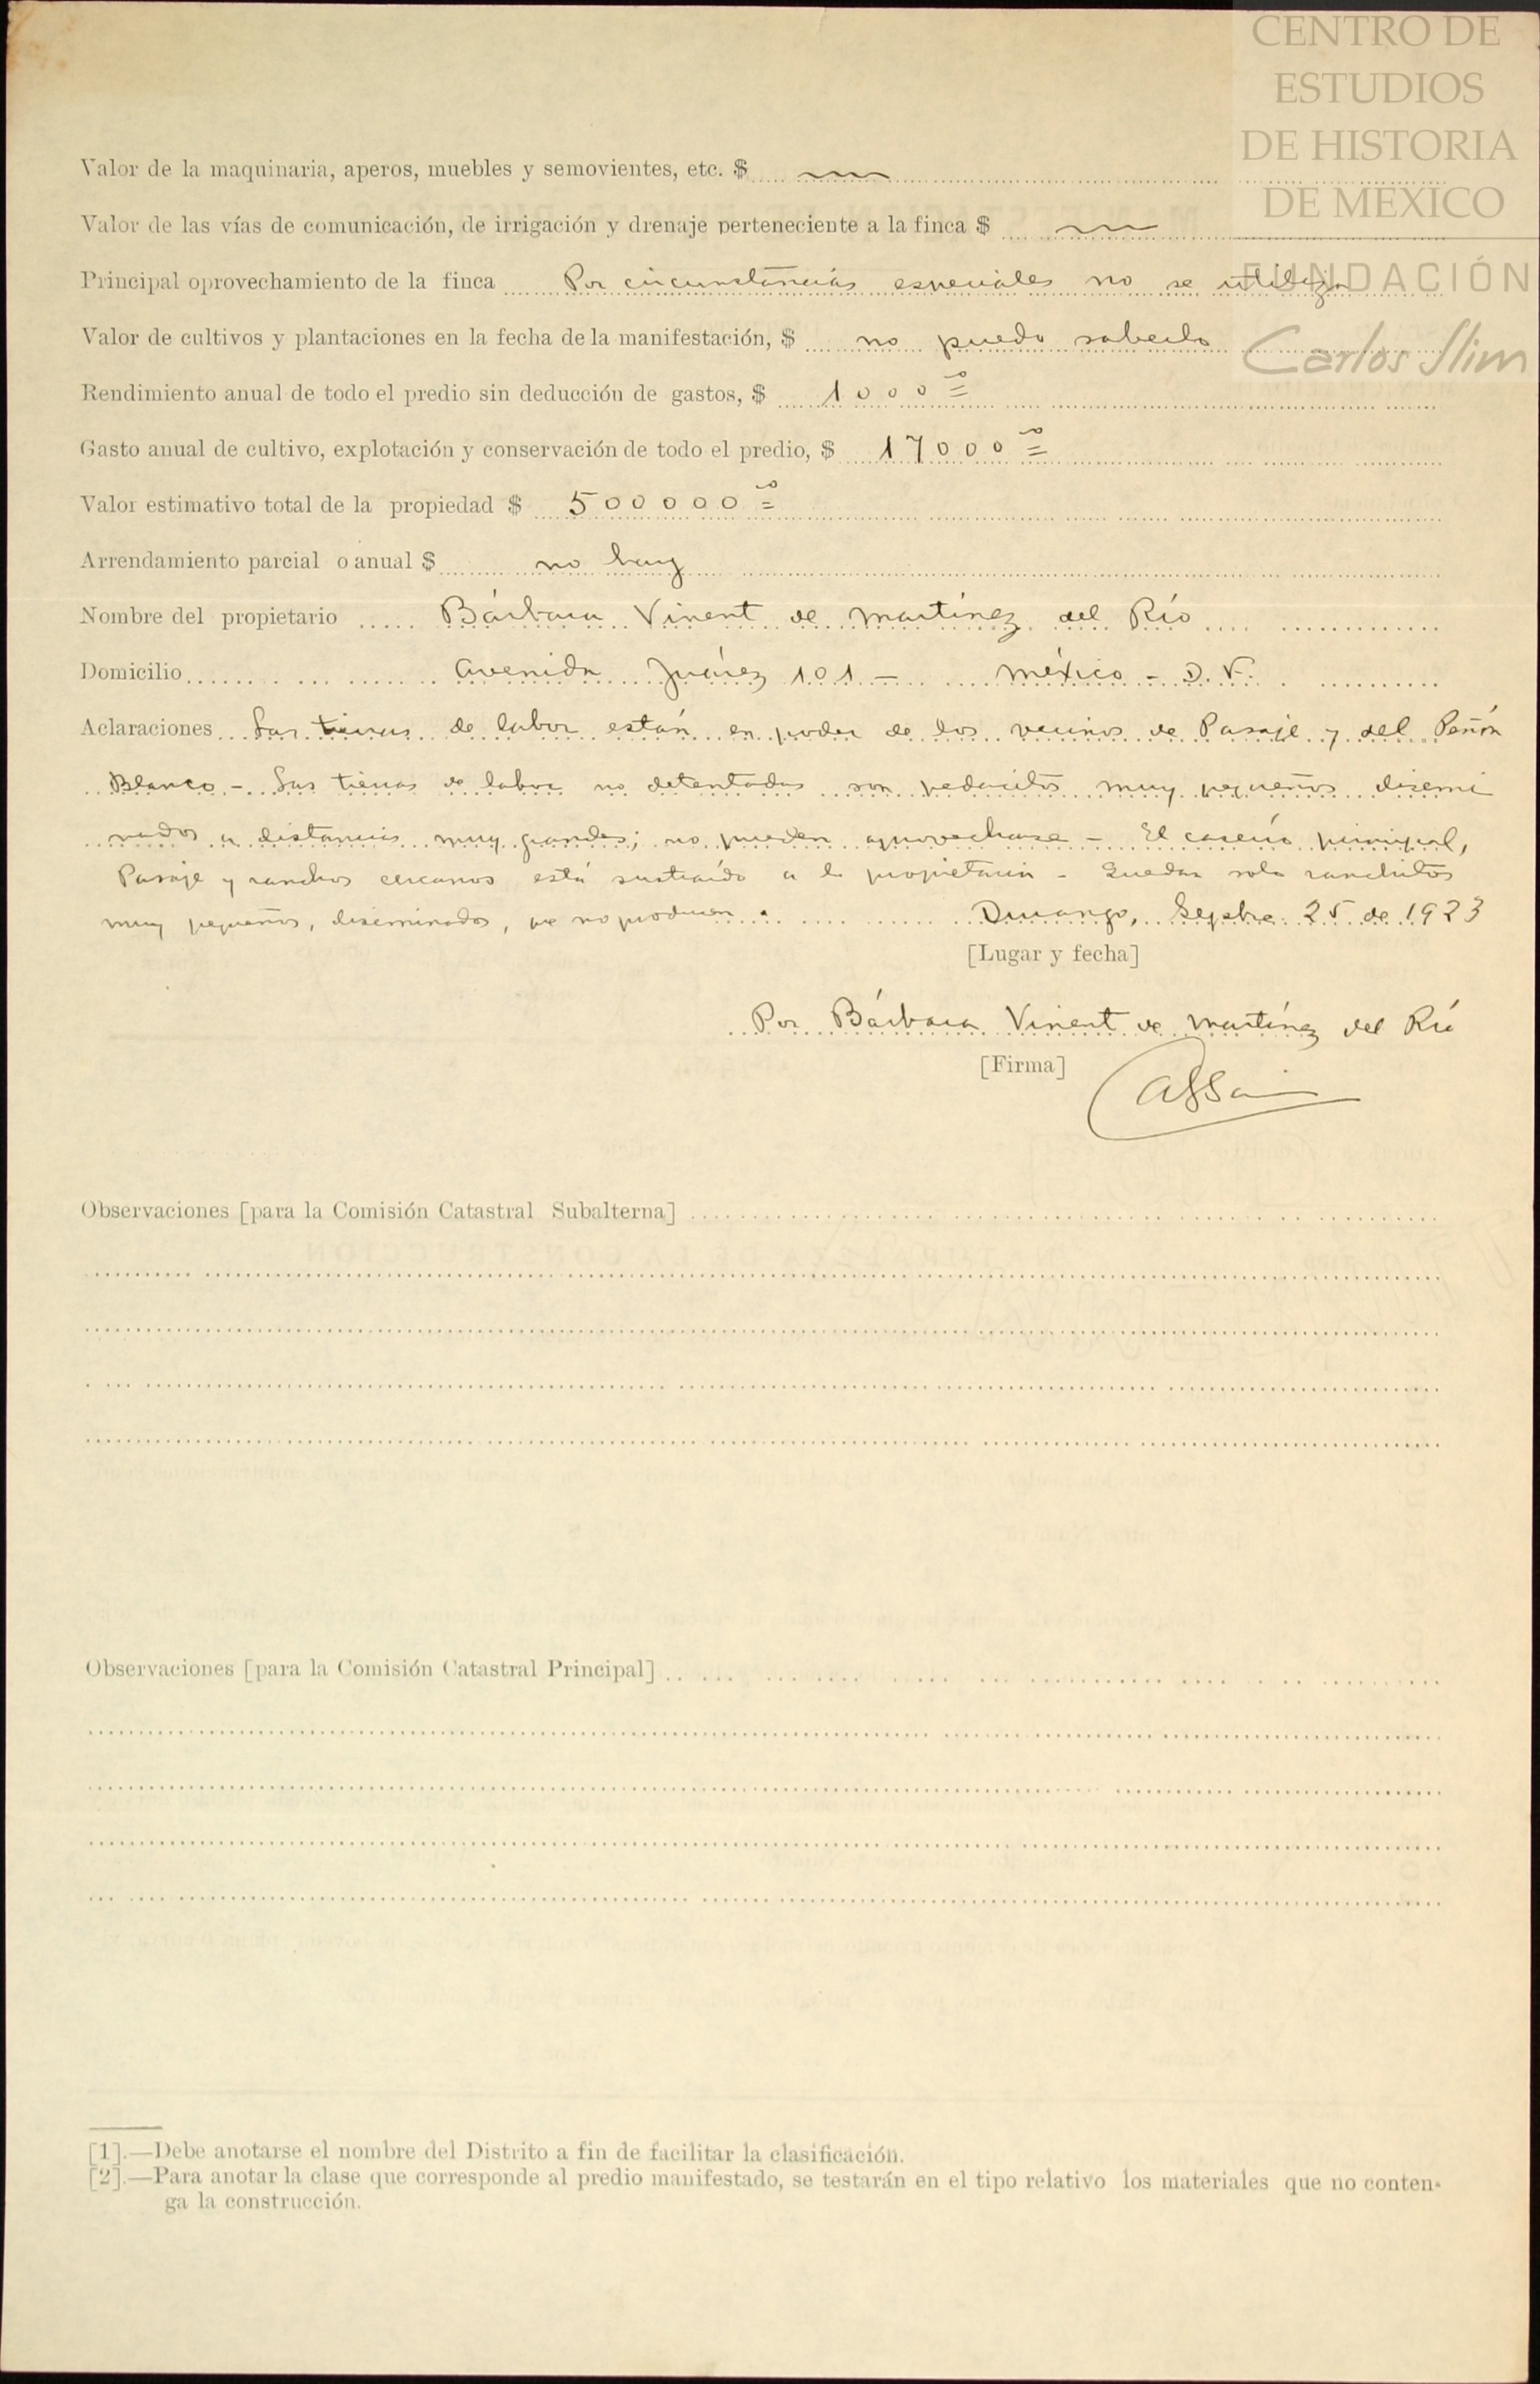 CENTRO DE
ESTUDIOS
DE HISTORIA
DE MEXICO
FUNDACIÓN
Carlos Slim
Valor de la maquinaria, aperos, muebles y semovientes, etc. $
Valor de las vías de comunicación, de irrigación y drenaje perteneciente a la finca $
Principal oprovechamiento de la finca Por circunstancias especiales no se utiliza
Valor de cultivos y plantaciones en la fecha de la manifestación, $ no puedo saberlo
Rendimiento anual de todo el predio sin deducción de gastos, $ 1000
Gasto anual de cultivo, explotación y conservación de todo el predio, $ 17000
Valor estimativo total de la propiedad $ 500000
Arrendamiento parcial o anual $ no hay
Nombre del propietario Bárbara Vinent de Martínez del Río
Domicilio Avenida Juárez 101 - México - D. F.
Aclaraciones Las tierras de labor están en poder de los vecinos de Pasaje y del Peñón
Blanco - Las tierras de labor no detentadas son pedacitos muy pequeños disemi
nados a distancias muy grandes; no pueden aprovecharse - El caserío principal,
Pasaje y ranchos cercanos está sustraído a la propietaria - Quedan solo ranchitos
muy pequeños, diseminados, que no producen. Durango, Sepbre. 25 de 1923
[Lugar y fecha]
Por Bárbara Vinent de Martínez del Río
[Firma]
Observaciones [para la Comisión Catastral Subalterna]
Observaciones [para la Comisión Catastral Principal]
[1].—Debe anotarse el nombre del Distrito a fin de facilitar la clasificación.
[2].—Para anotar la clase que corresponde al predio manifestado, se testarán en el tipo relativo los materiales que no conten-
ga la construcción.